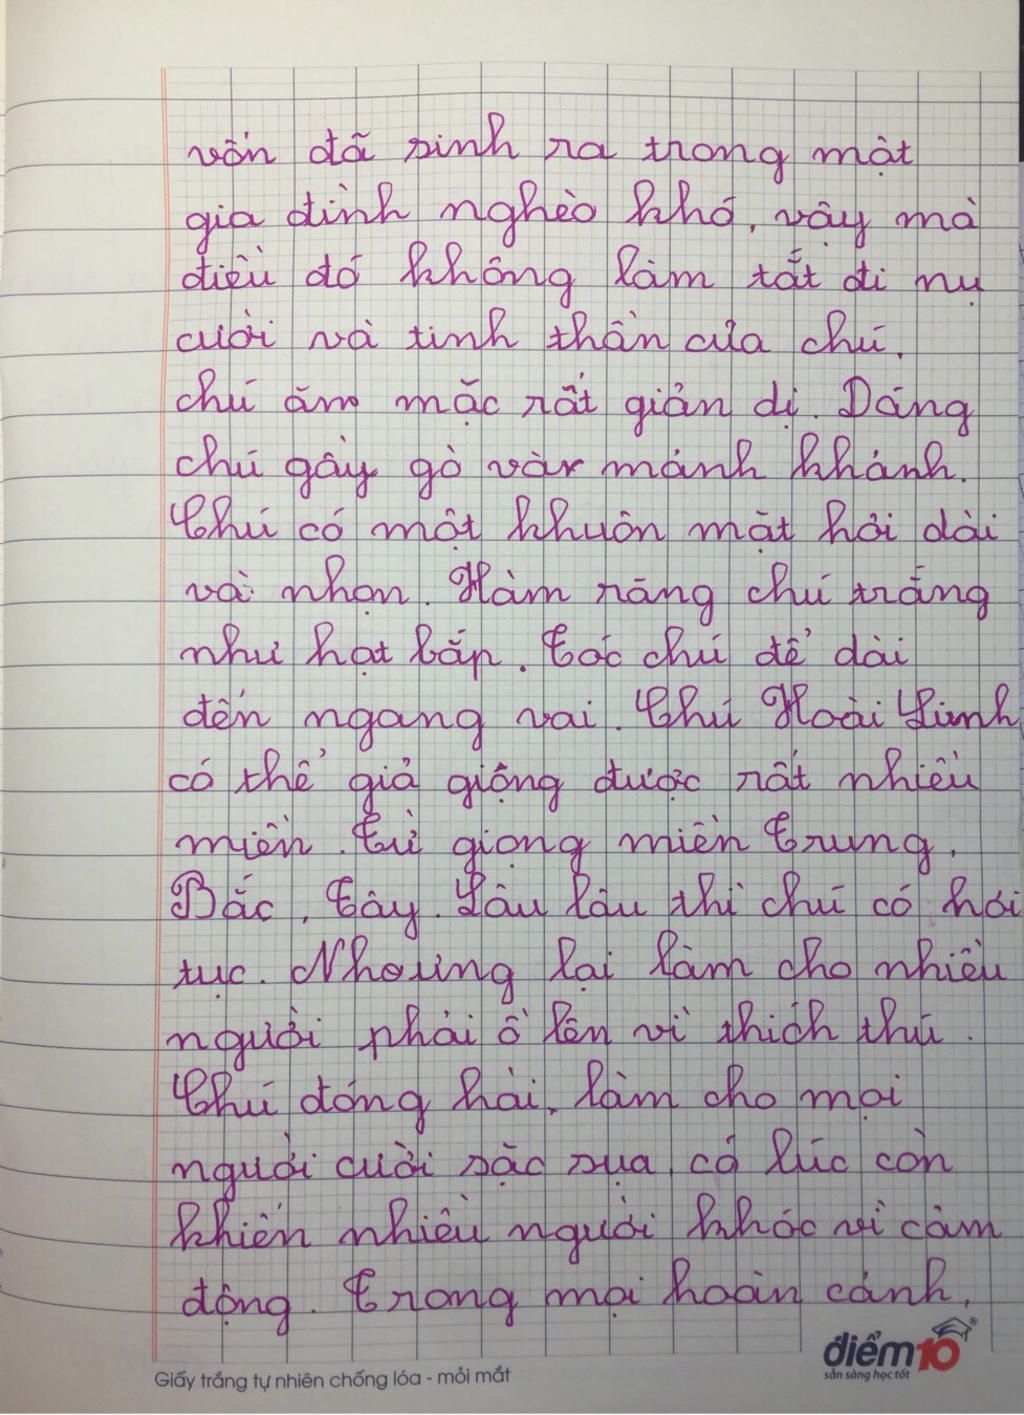 vốn đã sinh ra trong một
gia đình nghèo khó, vậy mà
điều đó không làm tắt đi nụ
cười và tinh thần của chú.
chú ăm mặc rất giản dị. Dáng
chú gầy gò và mảnh khảnh.
Chú có một khuôn mặt hơi dài
và nhọn. Hàm răng chú trắng
như hạt bắp. Tóc chú để dài
đến ngang vai. Chú Hoài Linh
có thể giả giọng được rất nhiều
miền. Từ giọng miền Trung,
Bắc, Tây. Lâu lâu thì chú có hơi
tục. Nhưng lại làm cho nhiều
người phải ồ lên vì thích thú.
Chú đóng hài, làm cho mọi
người cười sặc sụa, có lúc còn
khiến nhiều người khóc vì cảm
động. Trong mọi hoàn cảnh,
Giấy trắng tự nhiên chống lóa - mỏi mắt
điểm10
sẵn sàng học tốt